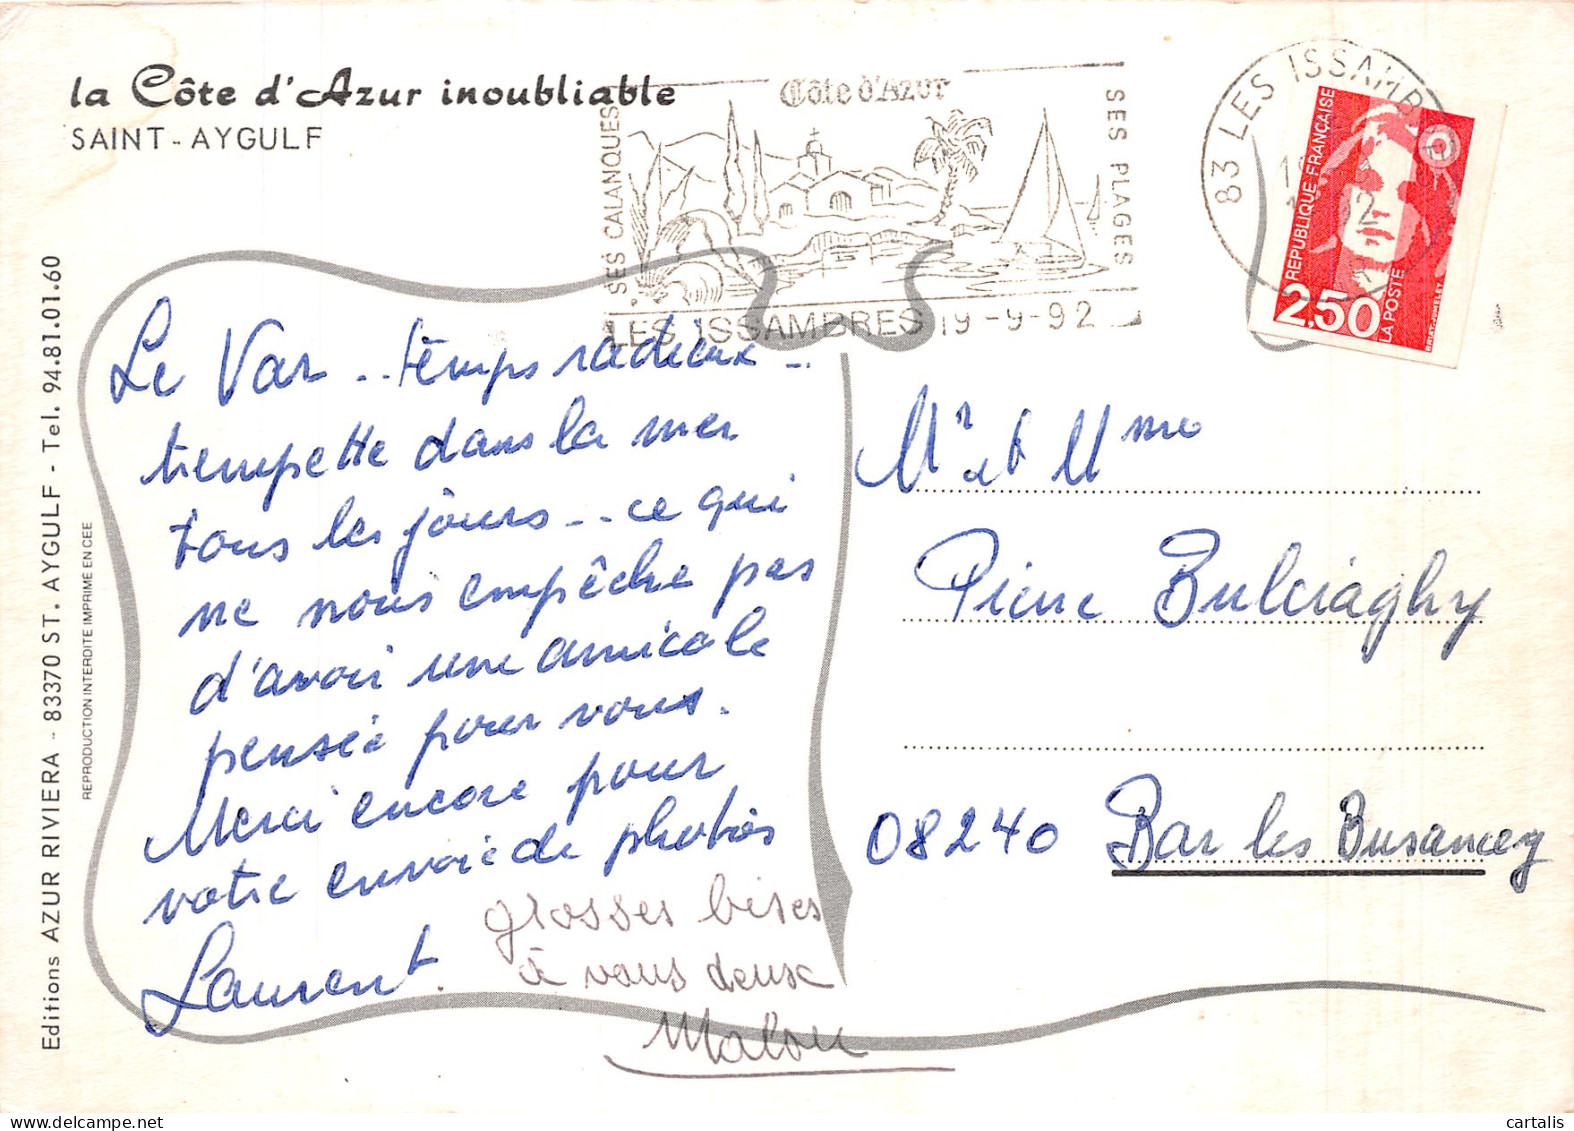 la Côte d'Azur inoubliable
SAINT-AYGULF
Côte d'Azur
SES CALANQUES
SES PLAGES
LES ISSAMBRES 19-9-92
83 LES ISSAMB
RÉPUBLIQUE FRANÇAISE
2,50
LA POSTE
Editions AZUR RIVIERA - 83370 ST. AYGULF - Tel. 94.81.01.60
REPRODUCTION INTERDITE IMPRIMÉ EN CEE
Le Var... temps radieux...
trempette dans la mer
tous les jours... ce qui
ne nous empêche pas
d'avoir une amicale
pensée pour vous.
Merci encore pour
votre envoi de photos
Laurent.
grosses bises
à vous deux
Malou
Mr et Mme
Pierre Bulciaghy
08240 Bar les Busancy
cartalis